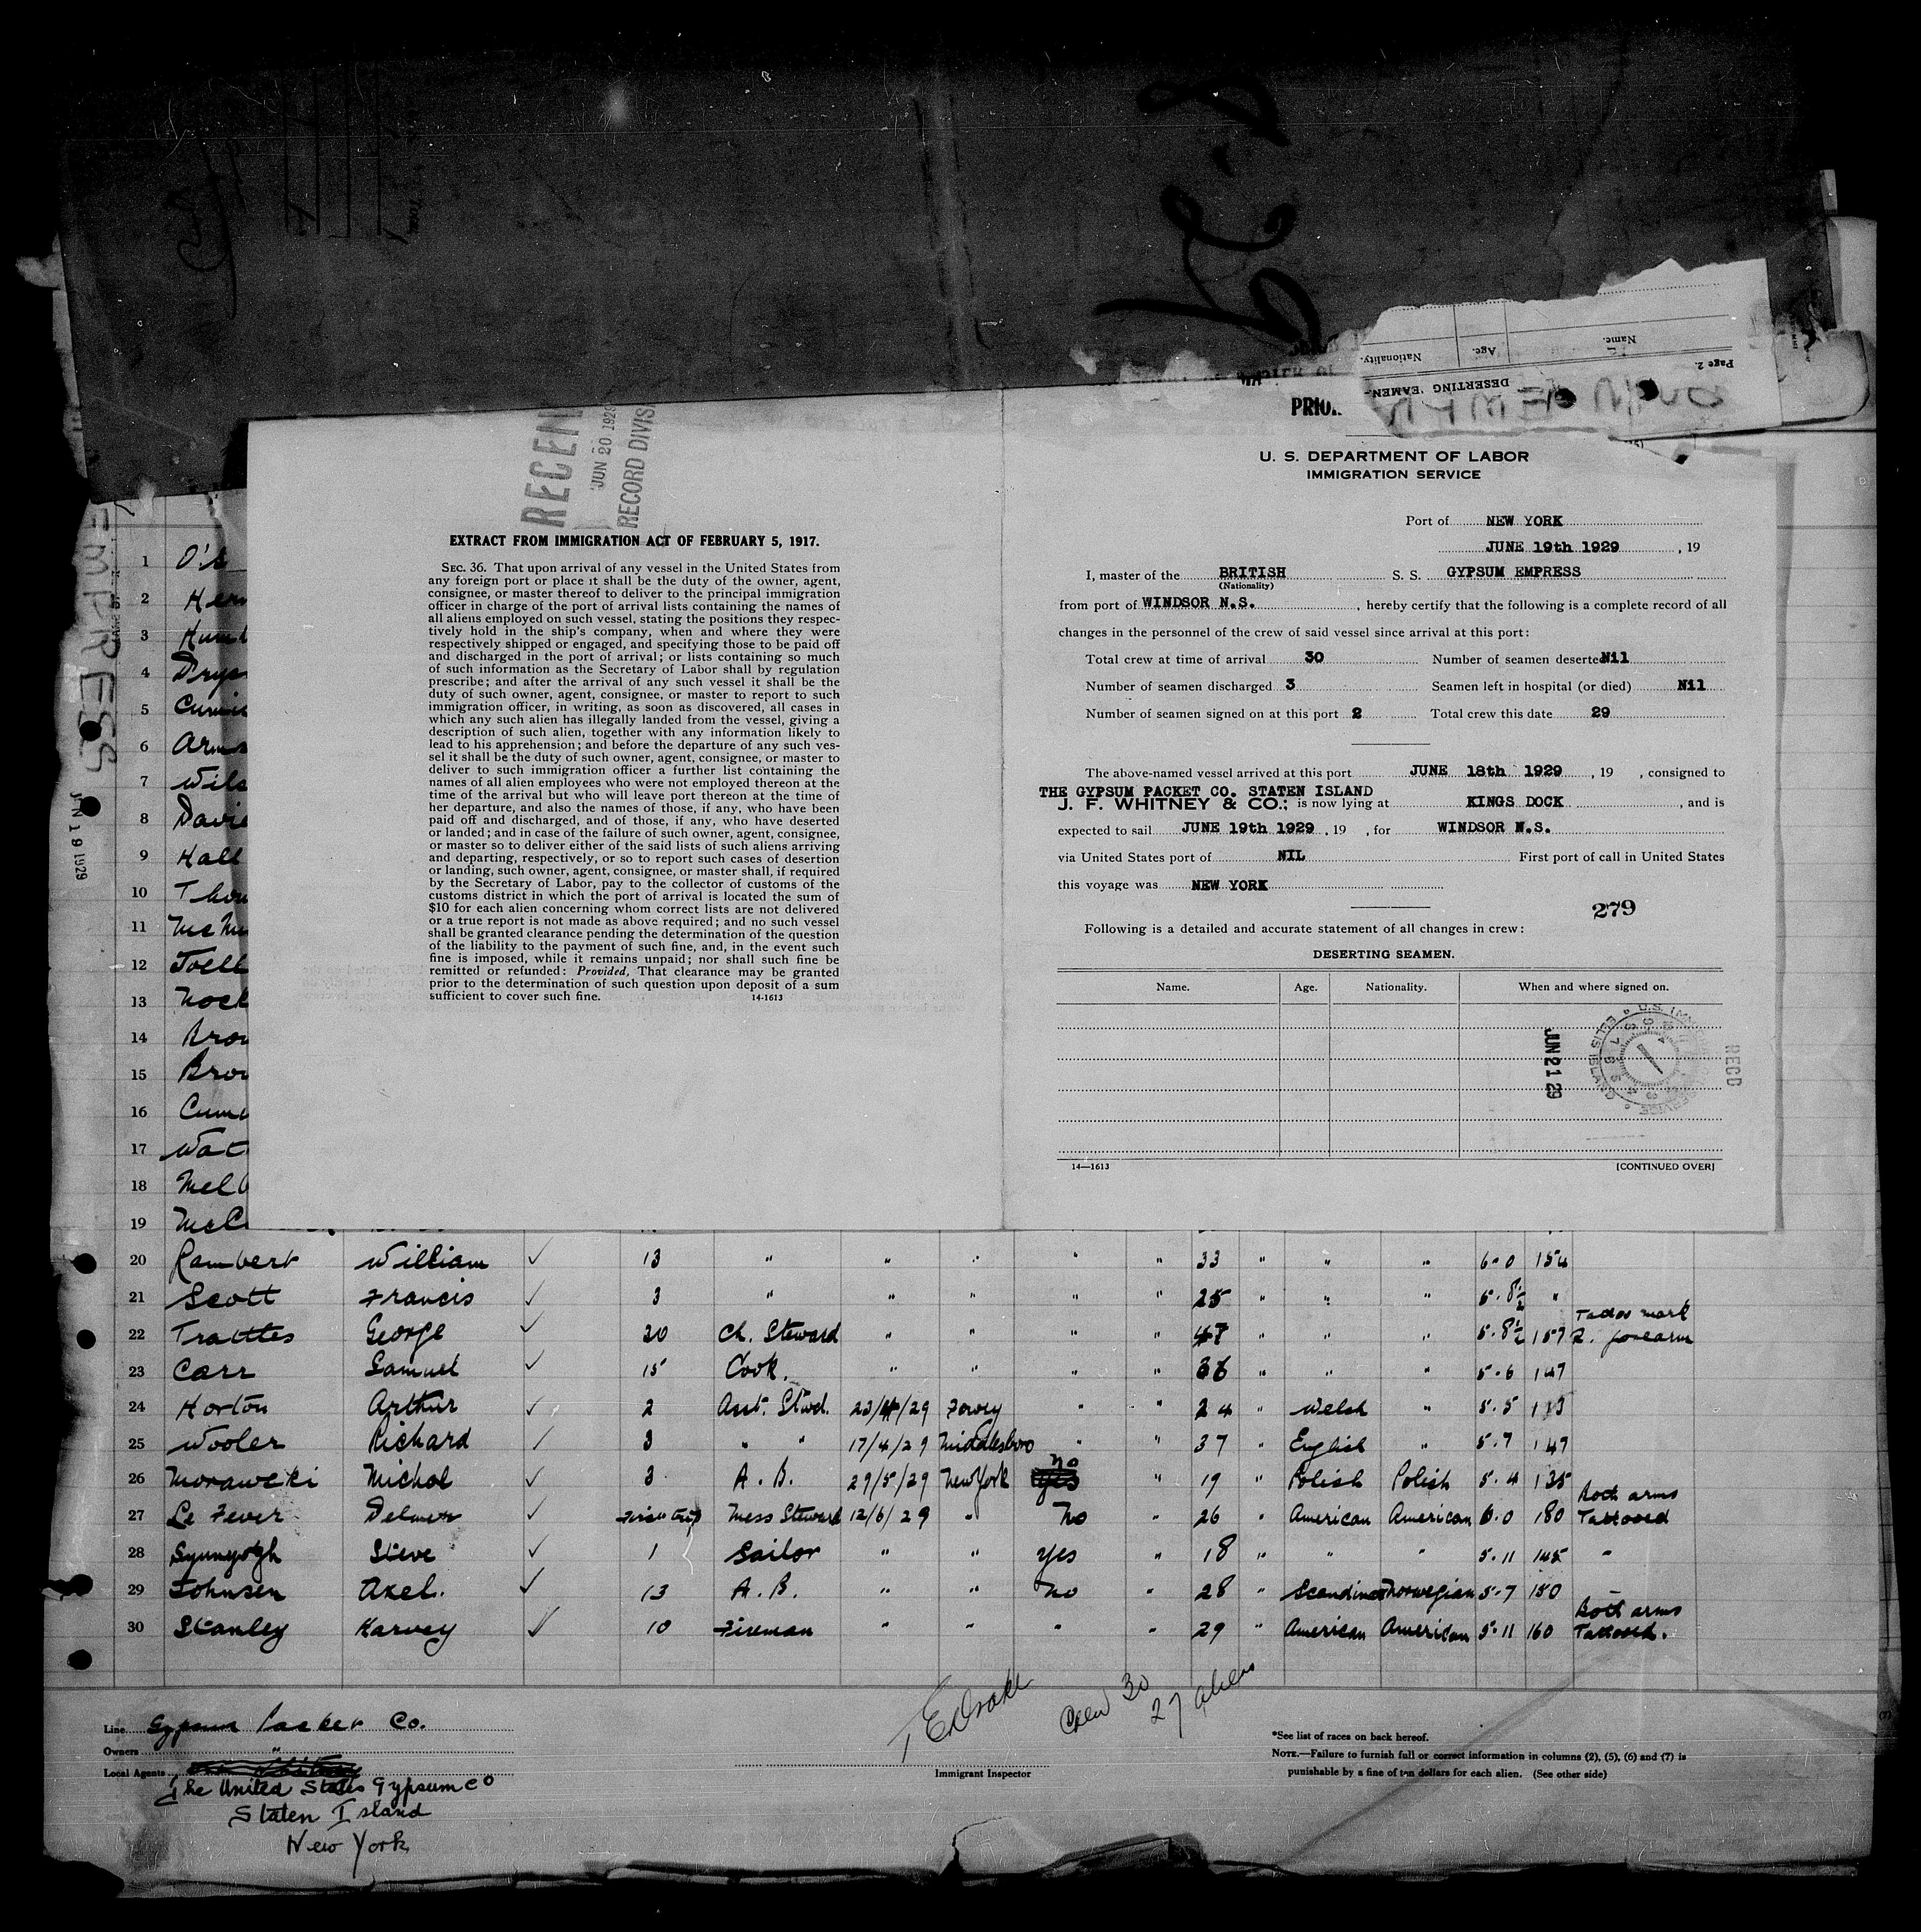 Name.
Age.
Nationality.
Page 2.
DESERTING
RECEI
JUN 20 1929
RECORD DIVIS
EXTRACT FROM IMMIGRATION ACT OF FEBRUARY 5, 1917.
SEC. 36. That upon arrival of any vessel in the United States from
any foreign port or place it shall be the duty of the owner, agent,
consignee, or master thereof to deliver to the principal immigration
officer in charge of the port of arrival lists containing the names of
all aliens employed on such vessel, stating the positions they respec-
tively hold in the ship's company, when and where they were
respectively shipped or engaged, and specifying those to be paid off
and discharged in the port of arrival; or lists containing so much
of such information as the Secretary of Labor shall by regulation
prescribe; and after the arrival of any such vessel it shall be the
duty of such owner, agent, consignee, or master to report to such
immigration officer, in writing, as soon as discovered, all cases in
which any such alien has illegally landed from the vessel, giving a
description of such alien, together with any information likely to
lead to his apprehension; and before the departure of any such ves-
sel it shall be the duty of such owner, agent, consignee, or master to
deliver to such immigration officer a further list containing the
names of all alien employees who were not employed thereon at the
time of the arrival but who will leave port thereon at the time of
her departure, and also the names of those, if any, who have been
paid off and discharged, and of those, if any, who have deserted
or landed; and in case of the failure of such owner, agent, consignee,
or master so to deliver either of the said lists of such aliens arriving
and departing, respectively, or so to report such cases of desertion
or landing, such owner, agent, consignee, or master shall, if required
by the Secretary of Labor, pay to the collector of customs of the
customs district in which the port of arrival is located the sum of
$10 for each alien concerning whom correct lists are not delivered
or a true report is not made as above required; and no such vessel
shall be granted clearance pending the determination of the question
of the liability to the payment of such fine, and, in the event such
fine is imposed, while it remains unpaid; nor shall such fine be
remitted or refunded: Provided, That clearance may be granted
prior to the determination of such question upon deposit of a sum
sufficient to cover such fine. 14-1613
U. S. DEPARTMENT OF LABOR
IMMIGRATION SERVICE
Port of NEW YORK
JUNE 19th 1929, 19
I, master of the BRITISH S. S. GYPSUM EMPRESS
(Nationality)
from port of WINDSOR N.S., hereby certify that the following is a complete record of all
changes in the personnel of the crew of said vessel since arrival at this port:
Total crew at time of arrival 30 Number of seamen deserted Nil
Number of seamen discharged 3 Seamen left in hospital (or died) Nil
Number of seamen signed on at this port 2 Total crew this date 29
The above-named vessel arrived at this port JUNE 18th 1929, 19 , consigned to
THE GYPSUM PACKET CO. STATEN ISLAND
J. F. WHITNEY & CO.; is now lying at KINGS DOCK, and is
expected to sail JUNE 19th 1929, 19 , for WINDSOR N.S.
via United States port of NIL First port of call in United States
this voyage was NEW YORK
279
Following is a detailed and accurate statement of all changes in crew:
DESERTING SEAMEN.
Name. Age. Nationality. When and where signed on.
JUN 21 29
RECD
14—1613 [CONTINUED OVER]
EMPRESS
JUN 19 1929
1
2
3
4
5
6
7
8
9 Hall
10
11
12
13
14
15
16
17
18
19
20 Rambert William ✓ 13 " " " " " 33 " " " 6-0 154
21 Scott Francis ✓ 3 " " " " " 25 " " " 5.8½ "
22 George ✓ 20 Ch. Steward " " " " 47 " " " 5.8½ 157 Tattoo mark R. forearm
23 Carr Samuel ✓ 15 Cook. " " " " 36 " " " 5.6 147
24 Horton Arthur ✓ 2 Asst. Stwd. 23/4/29 Fowey " " 24 " Welsh " 5.5 113
25 Wooler Richard ✓ 3 " " 17/4/29 Middlesboro " " 37 " English " 5.7 147
26 Morawski Michol ✓ 3 A. B. 29/5/29 New York no " 19 " Polish Polish 5.4 135
27 Le Fever Delmer ✓ First trip Mess Steward 12/6/29 " No " 26 " American American 6.0 180 Both arms Tattooed
28 Steve ✓ 1 Sailor " " Yes " 18 " " " 5.11 145 "
29 Johnsen Axel. ✓ 13 A. B. " " No " 28 " Norwegian 5.7 150
30 Stanley Harvey ✓ 10 Fireman " " " " 29 " American American 5.11 160 Both arms Tattooed.
Line Gypsum Packet Co.
Owners "
Local Agents
The United States Gypsum Co
Staten Island
New York
Crew 30
27 aliens
Immigrant Inspector
*See list of races on back hereof.
NOTE.—Failure to furnish full or correct information in columns (2), (5), (6) and (7) is
punishable by a fine of ten dollars for each alien. (See other side)